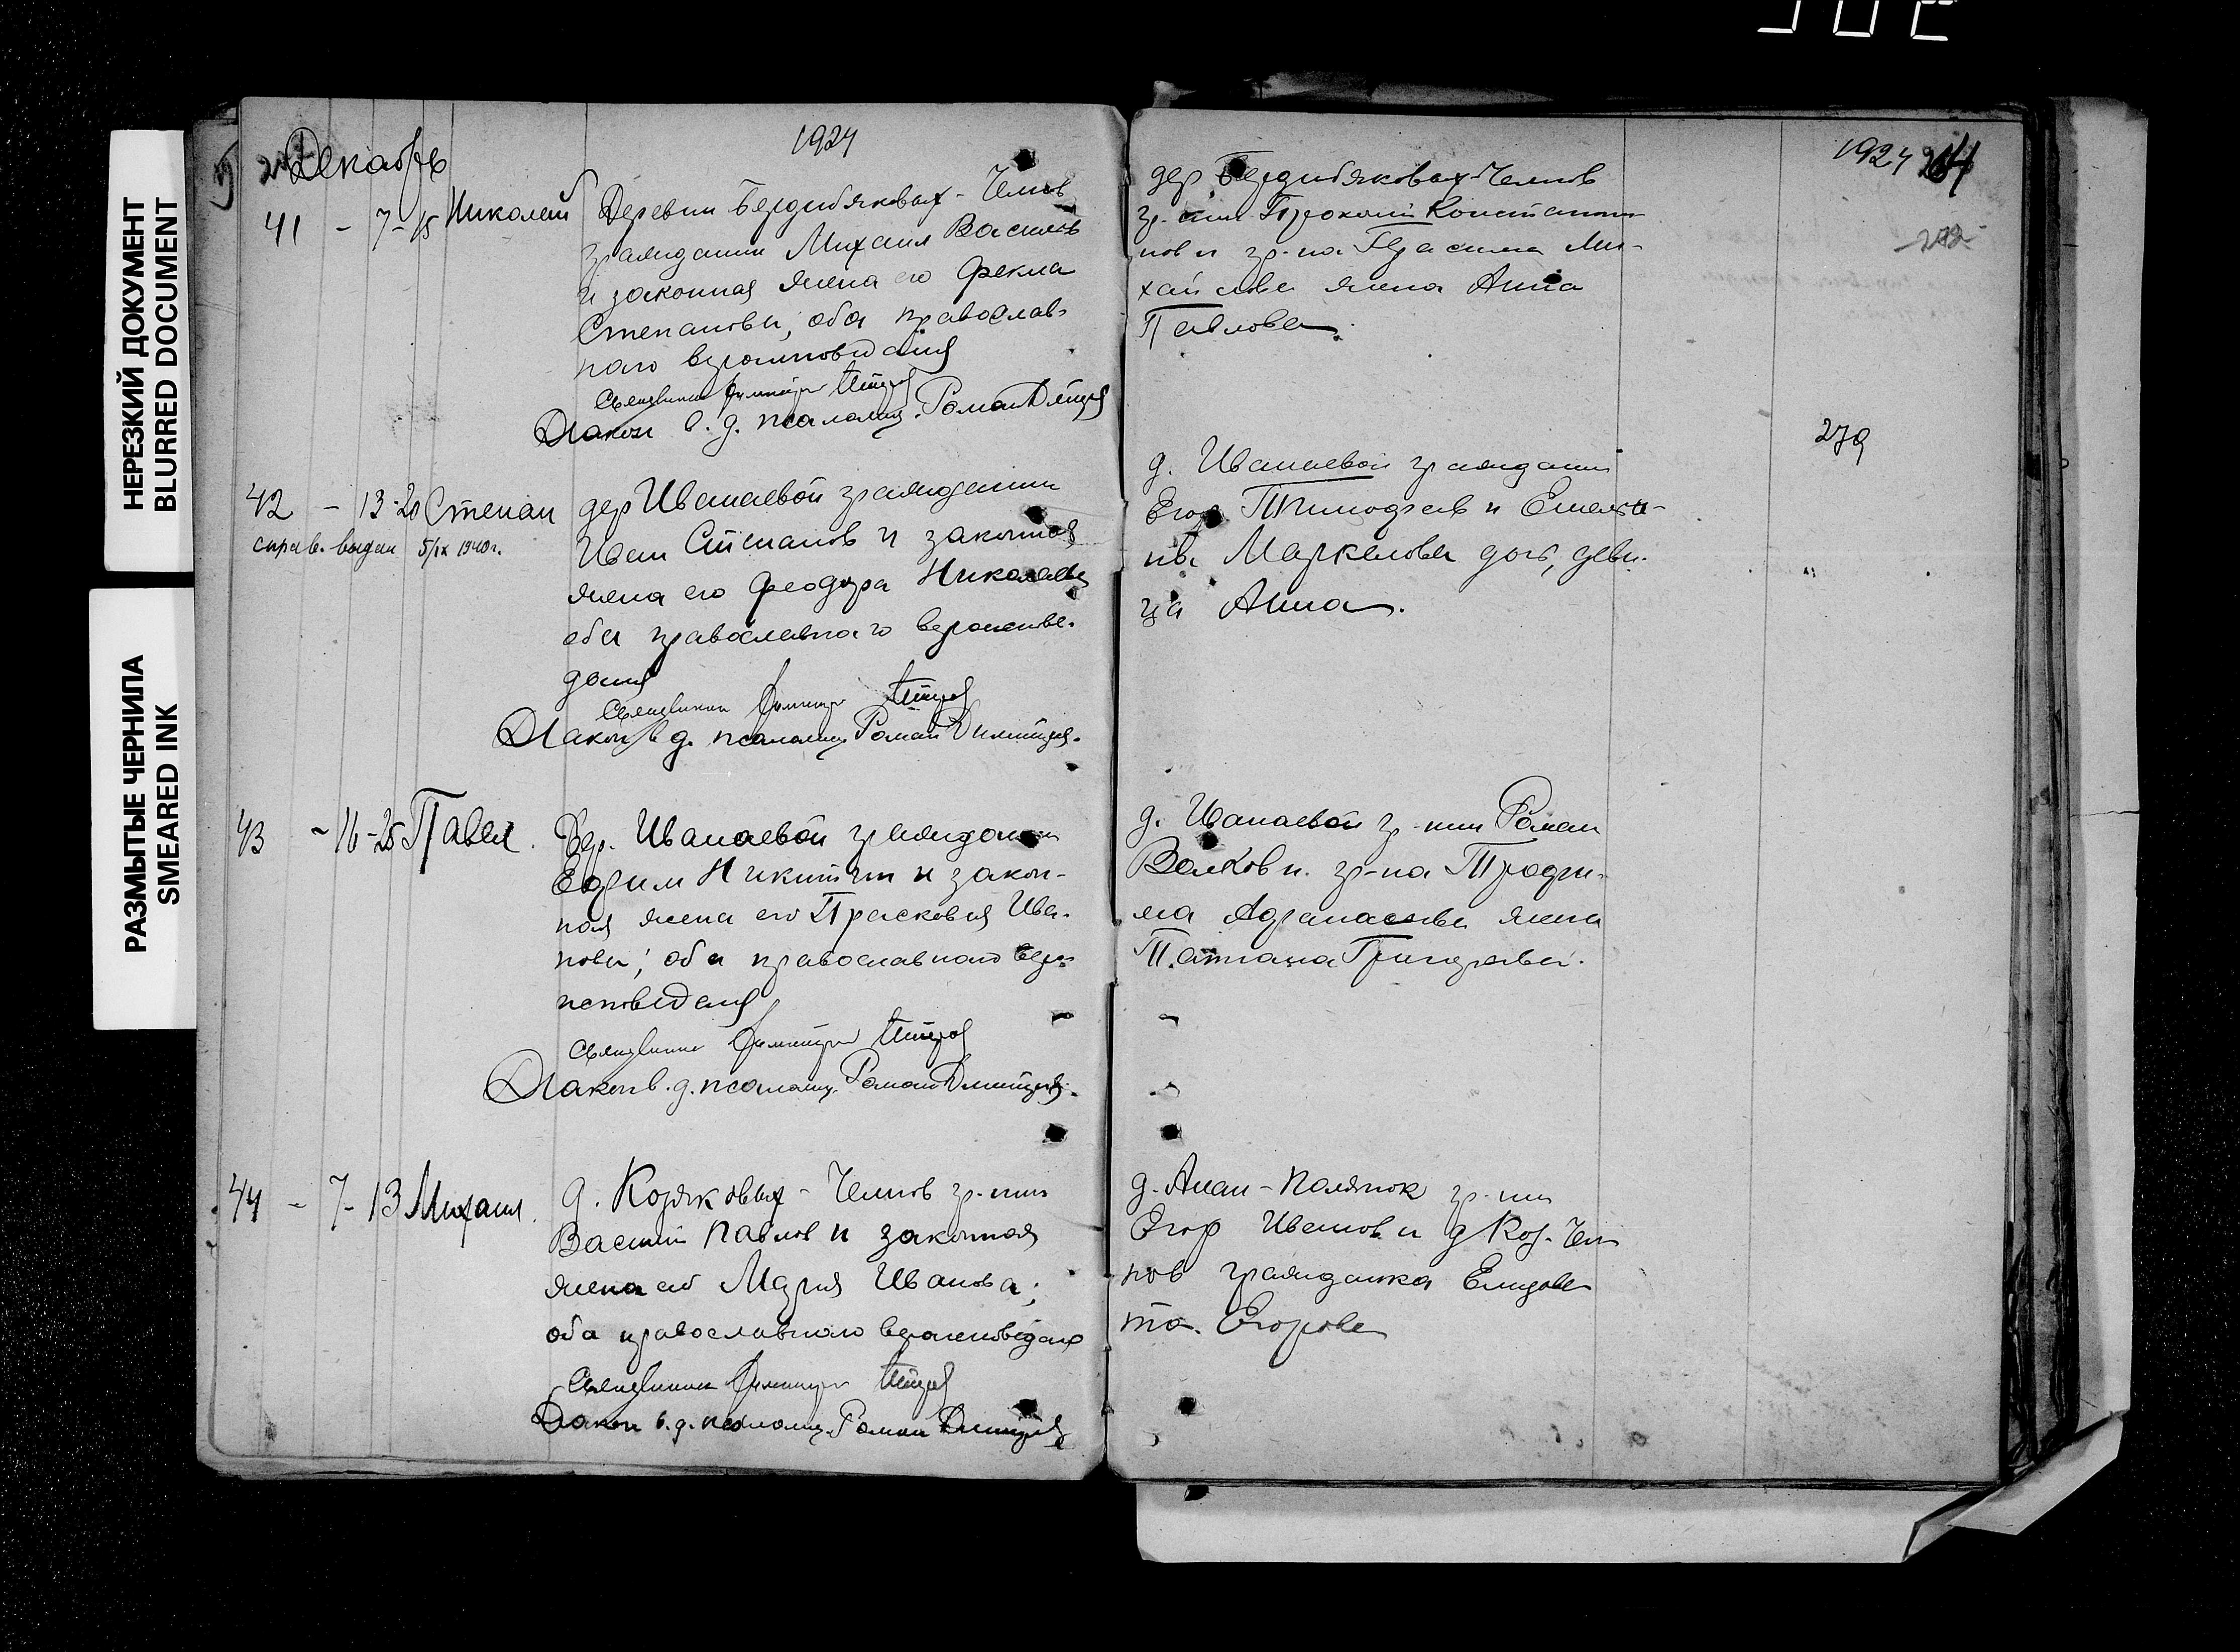 НЕРЕЗКИЙ ДОКУМЕНТ
BLURRED DOCUMENT
РАЗМЫТЫЕ ЧЕРНИЛА
SMEARED INK
1924
Декабрь
41 - 7-15 Николай Деревни Бердибяковых-Чепов
гражданин Михаил Васильев
и законная жена его Фекла
Степанова, оба православ-
наго вероисповедания
Священник Димитрий Петров
Диакон в. д. псаломщ. Роман Дмитриев
42 - 13-20 Степан дер Иванаевой гражданин
справ. выдан 5/IX 1940 г.
Иван Степанов и законная
жена его Феодора Николаева
оба православнаго вероиспове-
дания
Священник Димитрий Петров
Диакон в д. псаломщ. Роман Димитриев.
43 - 16-25 Павел. Дер. Иванаевой гражданин
Ефрем Никитин и закон-
ная жена его Прасковья Ива-
нова; оба православнаго веро-
исповедания
Священник Димитрий Петров
Диакон в. д. псаломщ. Роман Дмитриев.
44 - 7-13 Михаил. д. Коряковых-Чепов гр-нин
Василий Павлов и законная
жена его Мария Иванова;
оба православнаго вероисповедания
Священник Димитрий Петров
Диакон в. д. псаломщ. Роман Дмитриев
1924
дер. Бердибяковых-Чепов
гр-нин Прокопий Константи-
нов и гр-на Ми-
хайлова жена Анна
Павлова.
292
279
д. Иванаевой гражданин
Егор Тимофеев и Емелья-
на Маркелова дочь, деви-
ца Анна.
д. Иванаевой гр-нин Роман
Волков и гр-на Трофи-
ма Афанасьева жена
Татиана Григорьева.
гр-нин
Егор Иванов и д Кор. Че-
пов гражданка Елизаве-
та Егорова